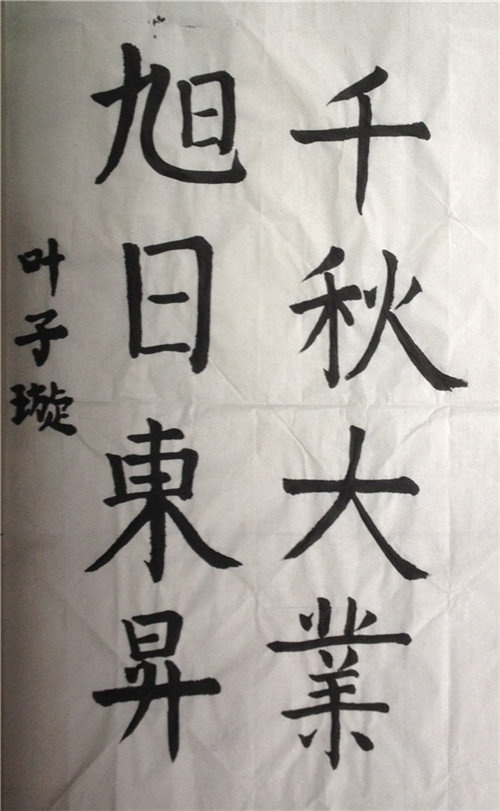 千秋大業
旭日東昇
叶子璇